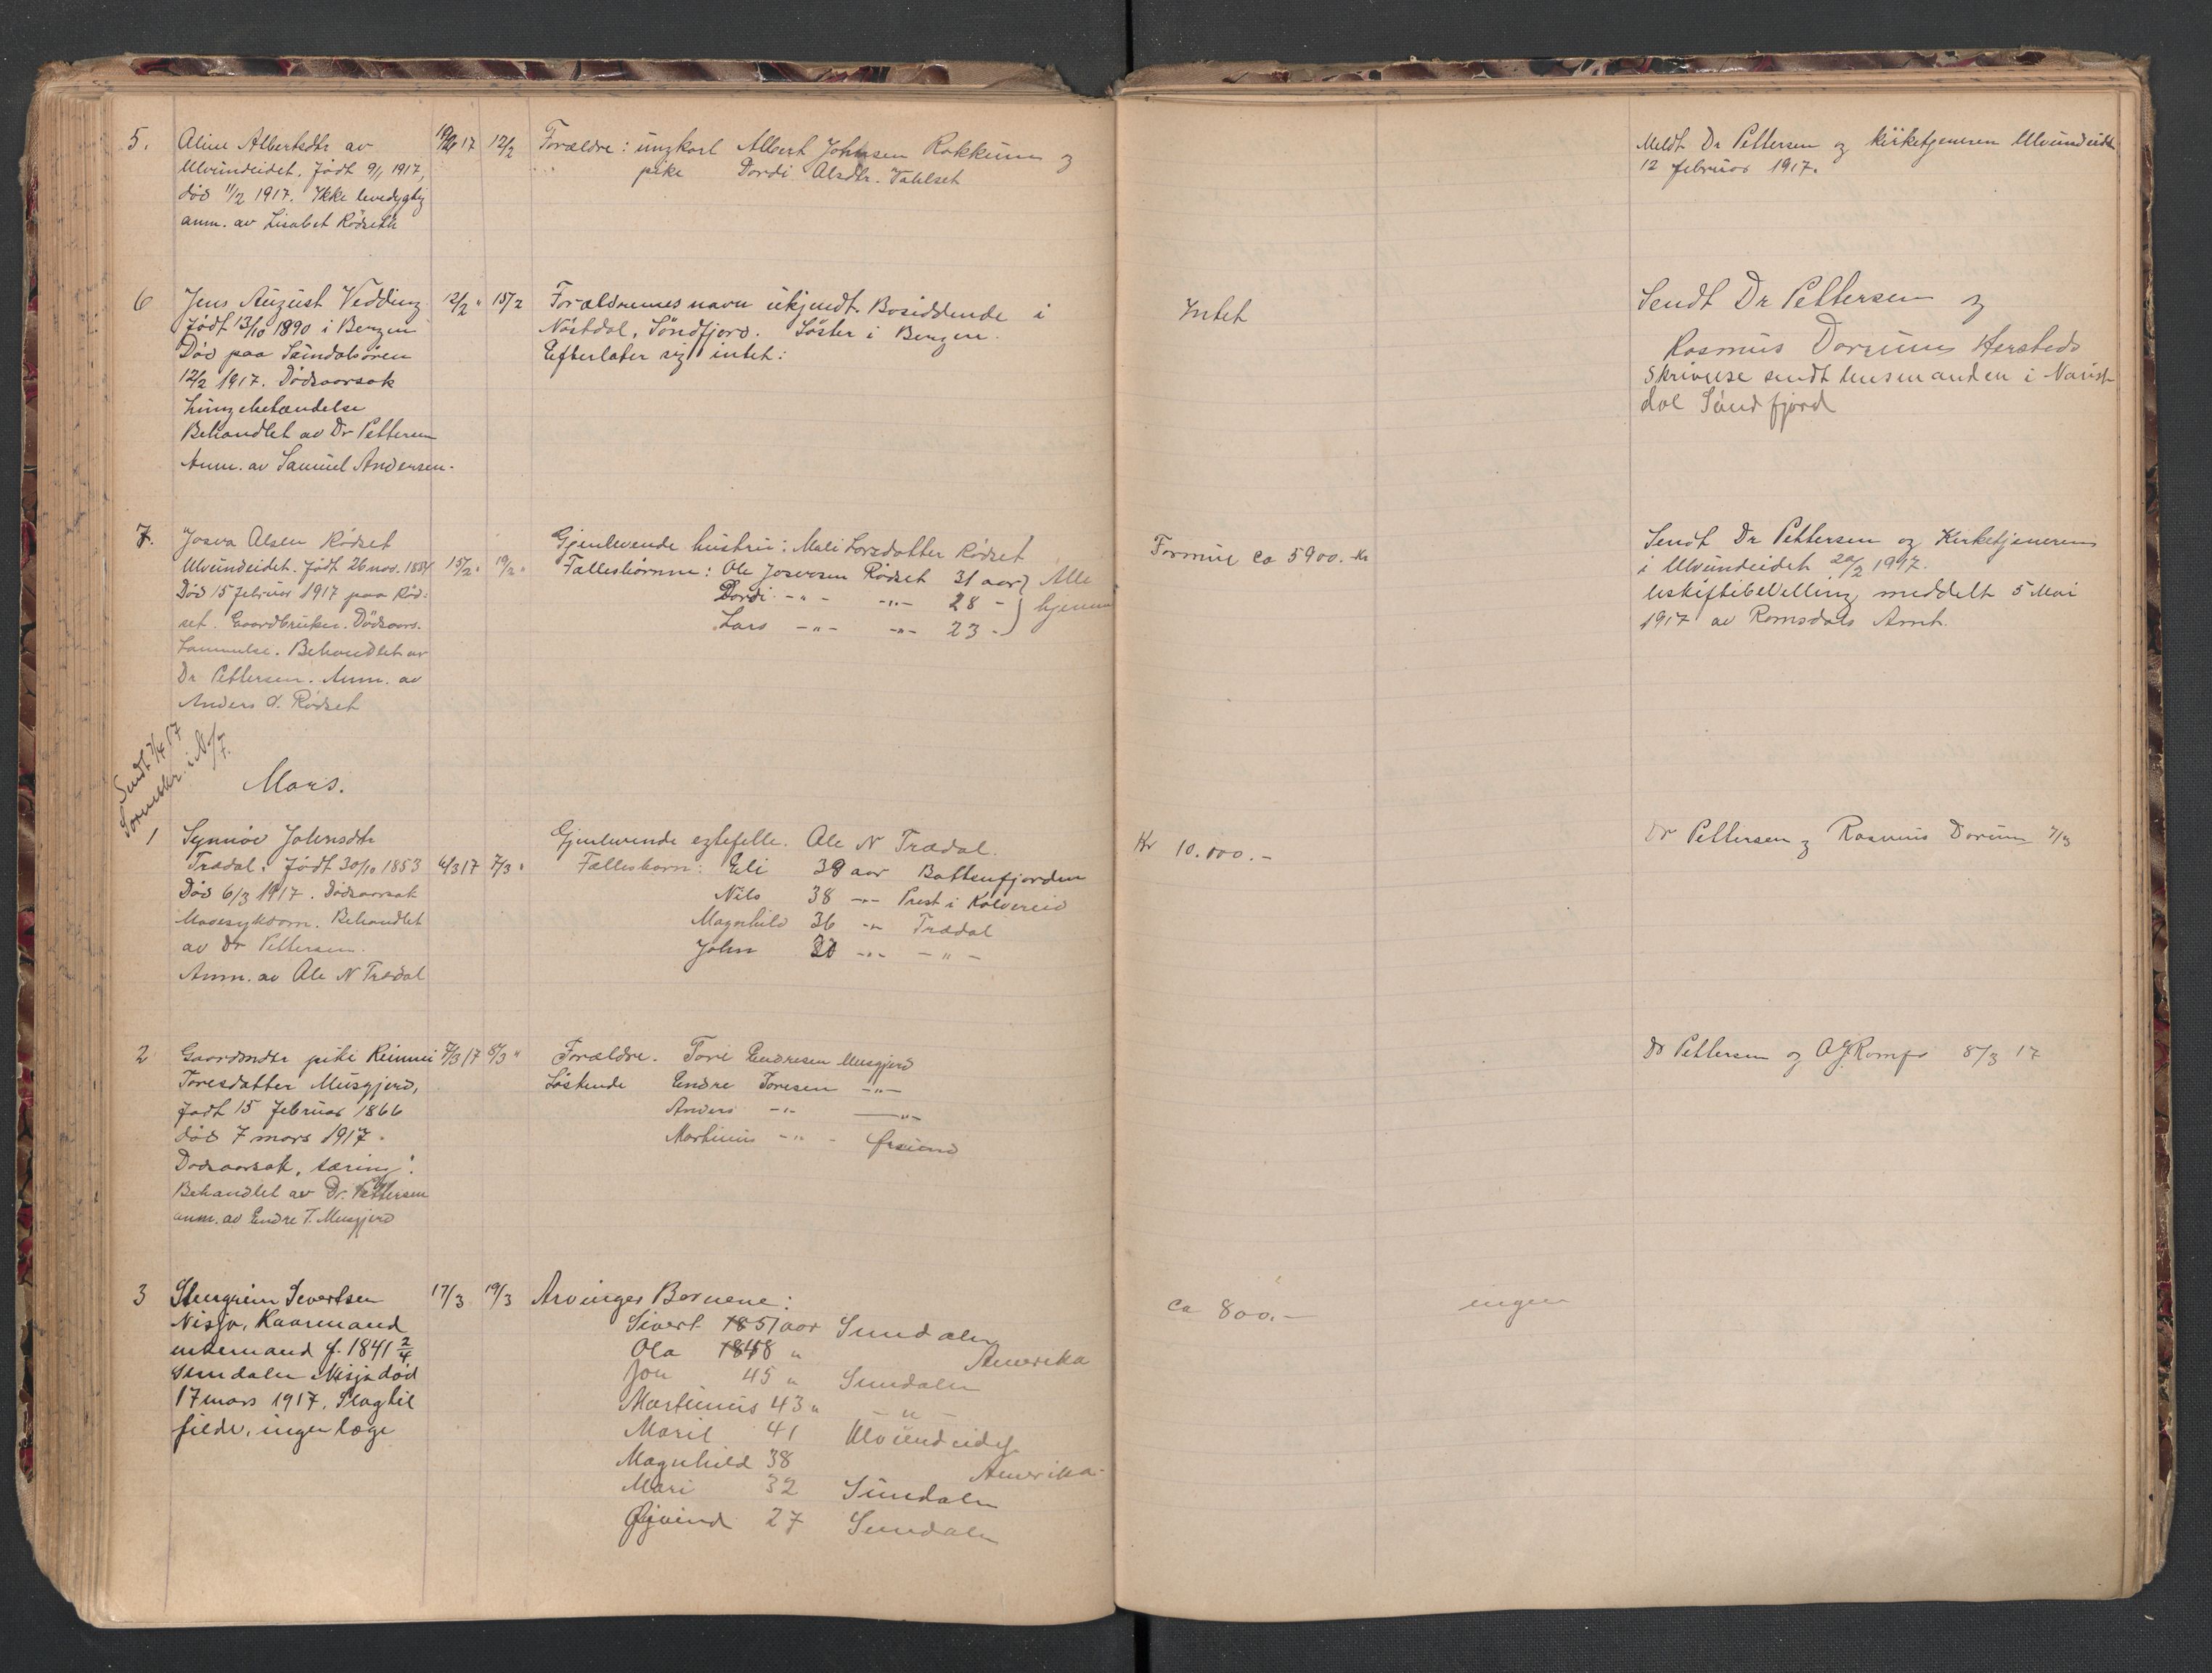 5. Aline Albertsdtr av 12/2 Forældre: ungkarl Albert Johnsen Rokkum og
Ulvundeidet. Født 9/1 1917, pike Dordi Alsdtr. Vahlset
død 11/2 1917. Ikke levedygtig
anm. av Lisabet Rødseth
Meldt Dr Pettersen og kirketjeneren Ulvundeidet
12 februar 1917.
6 Jens August Vedding 12/2 " 15/2 Forældrenes navn ukjendt. Bosiddende i
Født 13/10 1890 i Bergen Nöstdal, Söndfjord. Söster i Bergen.
Død paa Sundalsören Efterlater sig intet:
12/2 1917. Dödsaarsak
Lungebetændelse
Behandlet av Dr Pettersen
Anm. av Samuel Andersen.
Intet
Sendt Dr Pettersen og
Rasmus Dorrum Hersteds
Skrivelse sendt lensmanden i
dal Söndfjord
7. Josva Olsen Rødset Gjenlevende hustru: Mali Larsdatter Rødset
Ulvundeidet. Født 26 nov. 1854 15/2 " 19/2 " Fællesbörnene: Ole Josvasen Rødset 31 aar } Alle
Død 15 februar 1917 paa Rød- Dordi -"- -"- 28 - } hjemme
set. Gaardbruker. Dödsaars. Lars -"- -"- 23 - }
Lammelse. Behandlet av
Dr Pettersen. Anm. av
Anders O. Rødset
Formue ca 5900.- Kr
Sendt Dr Pettersen og Kirketjeneren
i Ulvundeidet 20/2 1917.
Uskiftibevilling meddelt 5 Mai
1917 av Romsdals Amt.
Sendt 7/4 17
Sorenskr. i No/7.
Mars.
1 Synnöv Johnsdtr Gjenlevende egtefelle. Ole N Trædal.
Trædal. Födt 30/10 1853 6/3 17 7/3 " Fællesbarn: Eli 39 aar Battenfjorden
Död 6/3 1917. Dödsaarsak Nils 38 -"- Prest i Kolvereid
Mavesykdom. Behandlet Magnhild 36 -"- Trædal
av Dr Pettersen. John 30 -"- -"-
Anm. av Ole N Trædal
Kr 10.000.-
Dr Pettersen og Rasmus Dorrum 7/3
2 Gaardmdtr pike Kimmi 7/3 17 8/3 " Forældre. Tore Endresen Musgjerd
Toresdatter Musgjerd, Söskende Endre Toresen -"-
født 15 februar 1866 Anders -"- -"-
död 7 mars 1917. Martinus -"- -
Dödsaarsak, tæring.
Behandlet av Dr. Pettersen
anm. av Endre T. Musgjerd
Dr Pettersen og 8/3 17
3 Stengrim Severtsen 17/3 19/3 Arvinger Børnene:
Nisja, Kaarmand Sivert 51 aar Sundalen
enkemand f. 1841 2/4 Ola 48 " Amerika
Sundalen Nisja död Jon 45 " Sundalen
17 mars 1917. Slagtil Martinus 43 " -"-
fælde, ingen læge Marit 41 Ulvundeidet
Magnhild 38 Amerika
Mari 32 Sundalen
Øjvind 27 Sundalen
ca 800.- ingen